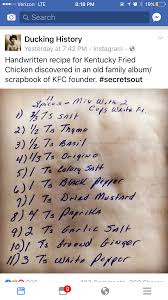 Verizon LTE 8:18 PM 19%
Ducking History
Yesterday at 7:42 PM · Instagram ·
Handwritten recipe for Kentucky Fried
Chicken discovered in an old family album/
scrapbook of KFC founder. #secretsout
11 Spices - Mix With 2
Cups White Fl.
1) 2/3 Ts Salt
2) 1/2 Ts Thyme
3) 1/2 Ts Basil
4) 1/3 Ts Origino
5) 1 Ts Celery Salt
6) 1 Ts Black Pepper
7) 1 Ts Dried Mustard
8) 4 Ts Paprika
9) 2 Ts Garlic Salt
10) 1 Ts Ground Ginger
11) 3 Ts White Pepper